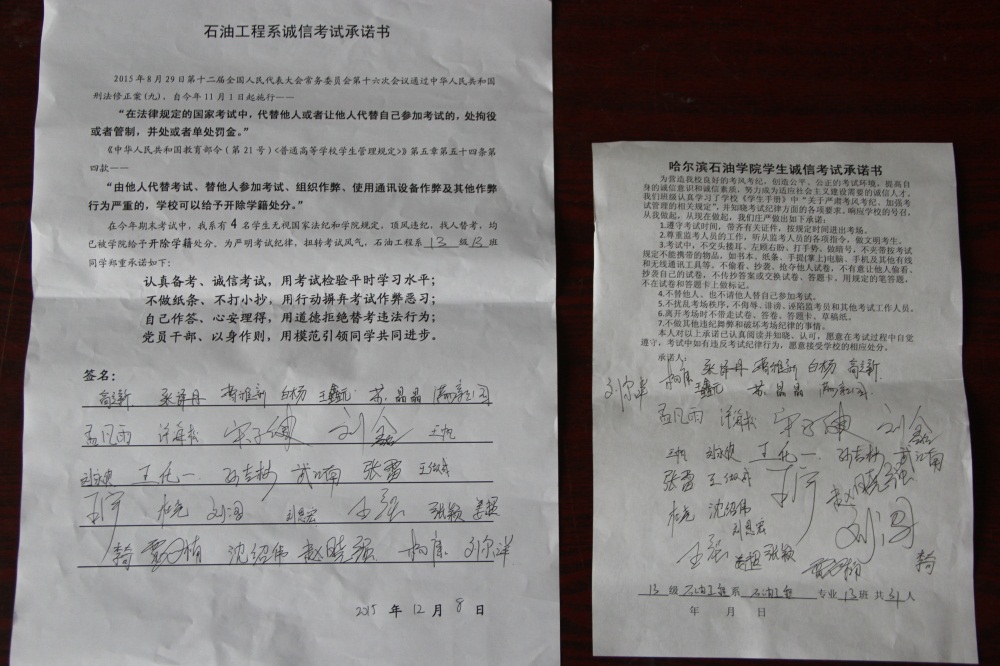 石油工程系诚信考试承诺书
2015年8月29日第十二届全国人民代表大会常务委员会第十六次会议通过中华人民共和国
刑法修正案(九)，自今年11月1日起施行——
“在法律规定的国家考试中，代替他人或者让他人代替自己参加考试的，处拘役
或者管制，并处或者单处罚金。”
《中华人民共和国教育部令（第21号）<普通高等学校学生管理规定>》第五章第五十四条第
四款——
“由他人代替考试、替他人参加考试、组织作弊、使用通讯设备作弊及其他作弊
行为严重的，学校可以给予开除学籍处分。”
在今年期末考试中，我系有4名学生无视国家法纪和学院规定，顶风违纪，找人替考，均
已被学院给予开除学籍处分。为严明考试纪律，扭转考试风气，石油工程系13级13班
同学郑重承诺如下：
认真备考、诚信考试，用考试检验平时学习水平；
不做纸条、不打小抄，用行动摒弃考试作弊恶习；
自己作答、心安理得，用道德拒绝替考违法行为；
党员干部、以身作则，用模范引领同学共同进步。
签名：
白杨 王鑫元 苏晶晶
孟凡雨 许海松 宋子健 刘鑫 王帆
王化一 孙吉彬 武江南 张雷
杜亮 刘恩宏 王强 张颖 姜超
沈绍伟 赵晓强 杨康 刘尔洋
2015年12月8日
哈尔滨石油学院学生诚信考试承诺书
为营造我校良好的考风考纪，创造公平、公正的考试环境，提高自
身的诚信意识和诚信素质，努力成为适应社会主义建设需要的诚信人才，
我们班级认真学习了学校《学生手册》中“关于严肃考风考纪，加强考
试管理的相关规定”，并知晓考试纪律方面的各项要求，响应学校的号召，
从我做起，从现在做起，我们庄严做出如下承诺：
1.遵守考试时间，带齐有关证件，按规定时间进出考场。
2.尊重监考人员的工作，听从监考人员的各项指令，做文明考生。
3.考试中，不交头接耳、左顾右盼、打手势、做暗号，不夹带按考试
规定不能携带的物品，如书本、纸条、手提(掌上)电脑、手机及其他有线
和无线通讯工具等，不偷看、抄袭、抢夺他人试卷，不有意让他人偷看、
抄袭自己的试卷，不传抄答案或交换试卷、答题卡。用规定的笔答题，
不在试卷和答题卡上做标记。
4.不替他人，也不请他人替自己参加考试。
5.不扰乱考场秩序，不侮辱、诽谤、诬陷监考员和其他考试工作人员。
6.离开考场时不带走试卷、答卷、答题卡、草稿纸。
7.不做其他违纪舞弊和破坏考场纪律的事情。
本人对以上承诺已认真阅读并知晓、认可，愿意在考试过程中自觉
遵守，考试中如有违反考试纪律行为，愿意接受学校的相应处分。
承诺人：
刘尔洋 杨康 白杨
王鑫元 苏晶晶
孟凡雨 许海松 宋子健 刘鑫
王帆 王化一 孙吉彬 武江南
张雷 赵晓强
杜亮 沈绍伟
刘恩宏
王强 姜超 张颖
13级 石油工程系 石油工程 专业 13班 共31人
年 月 日